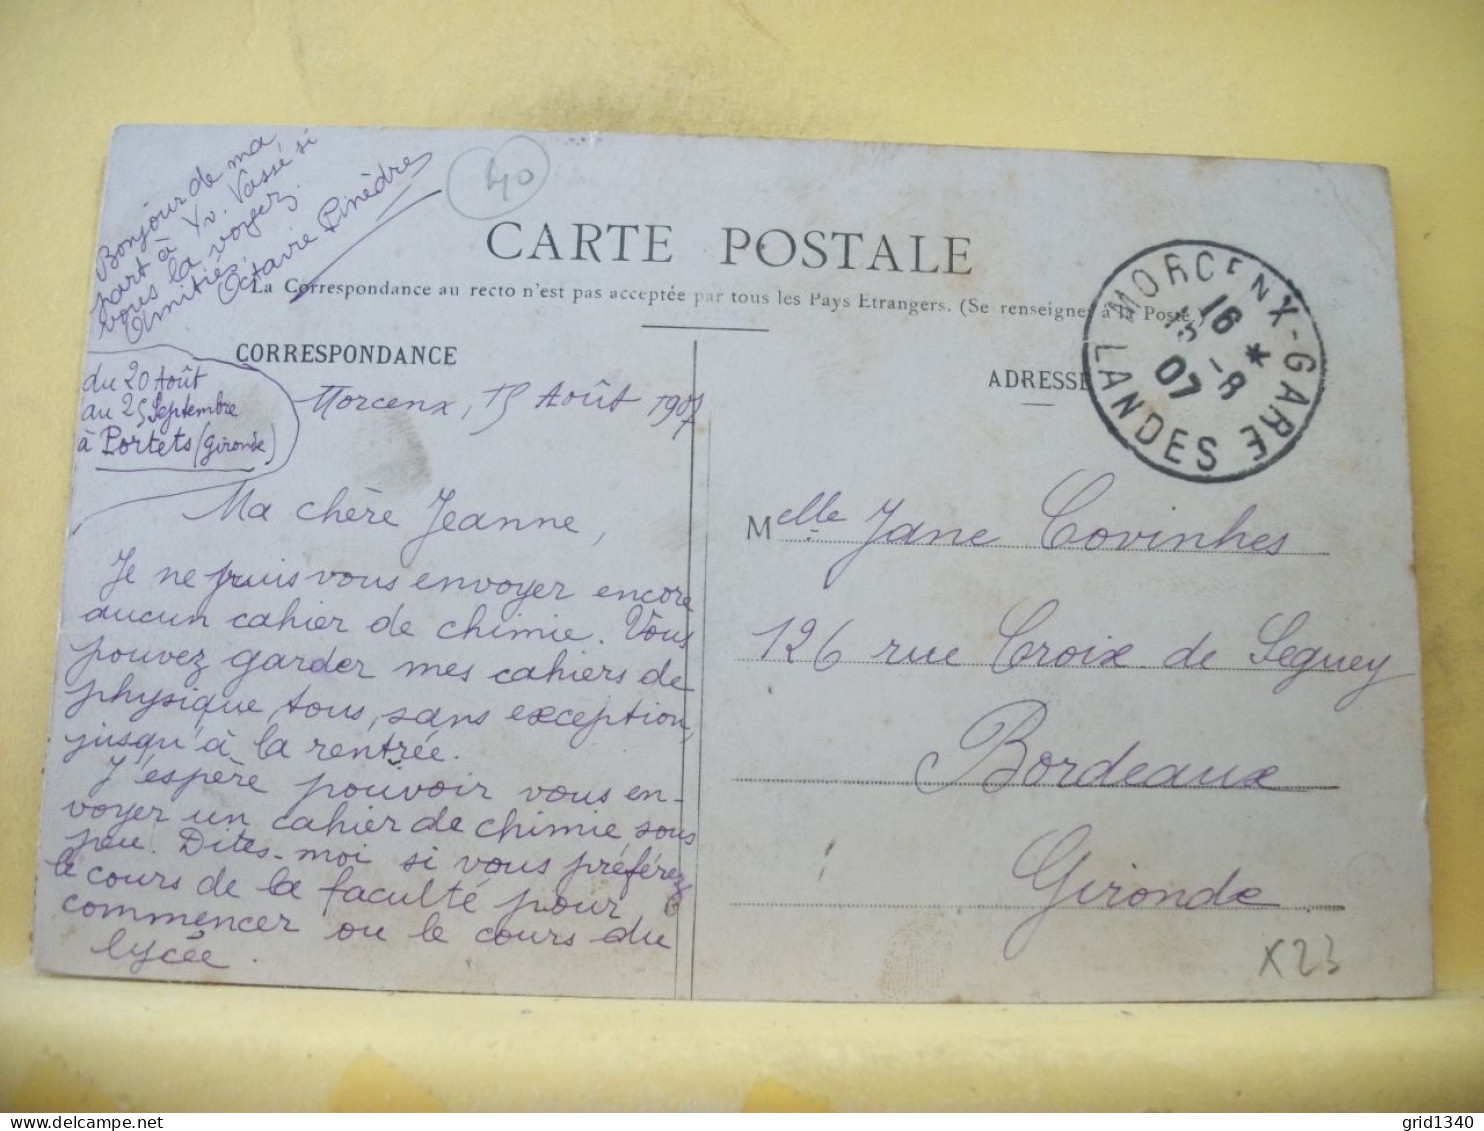 Bonjour de ma
part à Yv. Vassé si
vous la voyez.
Amitiés
Octavie Pinèdre
40
CARTE POSTALE
La Correspondance au recto n'est pas acceptée par tous les Pays Etrangers. (Se renseigner à la Poste)
CORRESPONDANCE
ADRESSE
MORCENX-GARE
LANDES
16
-8
07
du 20 Août
au 25 Septembre
à Portets (Gironde)
Morcenx, 15 Août 1907
Ma chère Jeanne,
Je ne puis vous envoyer encore
aucun cahier de chimie. Vous
pouvez garder mes cahiers de
physique, tous, sans exception,
jusqu'à la rentrée.
J'espère pouvoir vous en-
voyer un cahier de chimie sous
peu. Dites-moi si vous préférez
le cours de la faculté pour
commencer ou le cours du
lycée.
Melle Jane Covinhes
126 rue Croix de Seguey
Bordeaux
Gironde
X23
grid1340